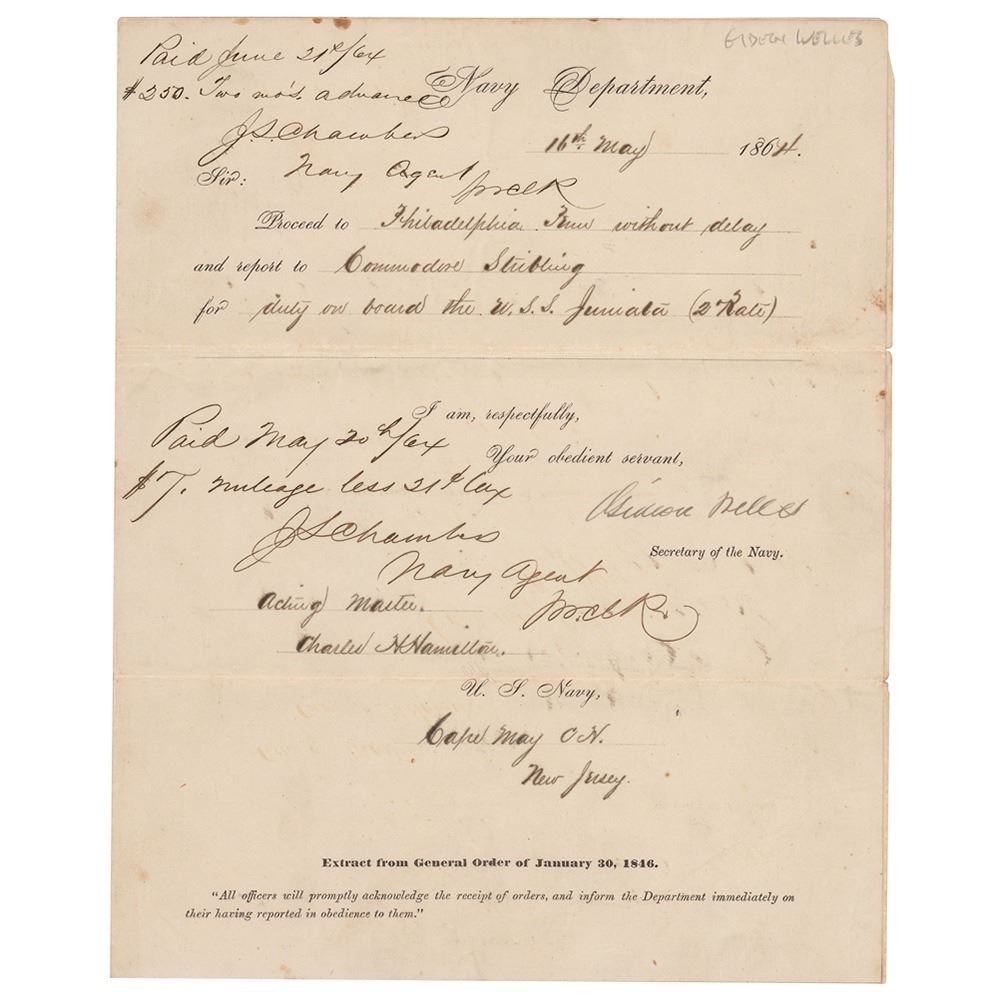 GIDEON WELLES
Paid June 21st/64
$250. Two mo's. advance
J.S. Chambers
Navy Agent
Navy Department,
16th May 1864.
Sir:
Proceed to Philadelphia Penn without delay
and report to Commodore Stribling
for duty on board the U.S.S. Juniata (2d Rate)
I am, respectfully,
Your obedient servant,
Gideon Welles
Secretary of the Navy.
Paid May 20th/64
$7. mileage less 21c tax
J S Chambers
Navy Agent
Acting Master.
Charles H Hamilton.
U. S. Navy,
Cape May C.H.
New Jersey.
Extract from General Order of January 30, 1846.
"All officers will promptly acknowledge the receipt of orders, and inform the Department immediately on
their having reported in obedience to them."